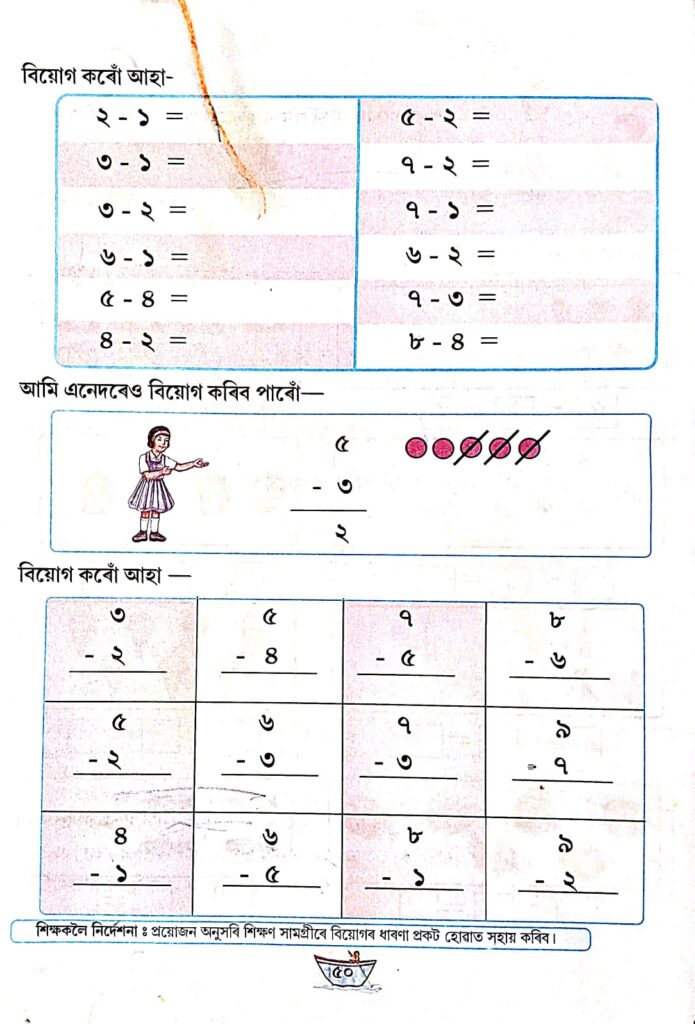 বিয়োগ কৰোঁ আহা-
২ - ১ =
৩ - ১ =
৩ - ২ =
৬ - ১ =
৫ - ৪ =
৪ - ২ =
৫ - ২ =
৭ - ২ =
৭ - ১ =
৬ - ২ =
৭ - ৩ =
৮ - ৪ =
আমি এনেদৰেও বিয়োগ কৰিব পাৰোঁ—
৫
- ৩
২
বিয়োগ কৰোঁ আহা —
৩ ৫ ৭ ৮
- ২ - ৪ - ৫ - ৬
৫ ৬ ৭ ৯
- ২ - ৩ - ৩ - ৭
৪ ৬ ৮ ৯
- ১ - ৫ - ১ - ২
শিক্ষকলৈ নিৰ্দেশনা : প্ৰয়োজন অনুসৰি শিক্ষণ সামগ্ৰীৰে বিয়োগৰ ধাৰণা প্ৰকট হোৱাত সহায় কৰিব।
৫০